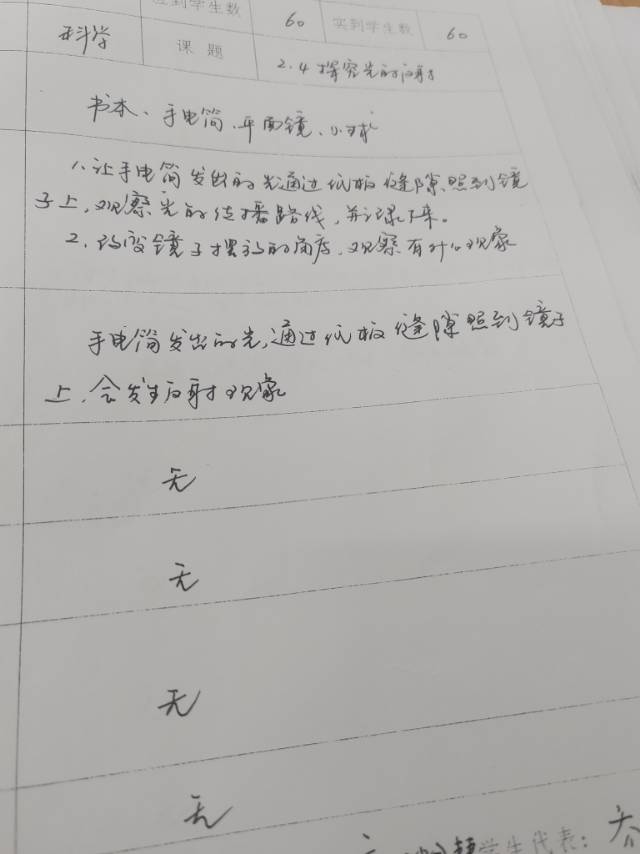 应到学生数 60 实到学生数 60
科学 课题 2.4 探究光的反射
书本、手电筒、平面镜、小球
1、让手电筒发出的光通过纸板缝隙照到镜
子上,观察光的传播路线,并记录下来。
2、改变镜子摆放的角度,观察有什么现象
手电筒发出的光,通过纸板缝隙照到镜子
上,会发生反射现象
无
无
无
无
学生代表: